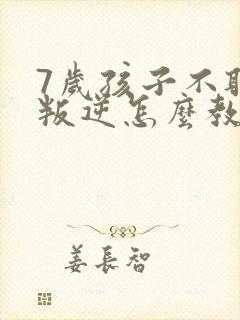 7歲孩子不
叛逆怎麼教
姜長智